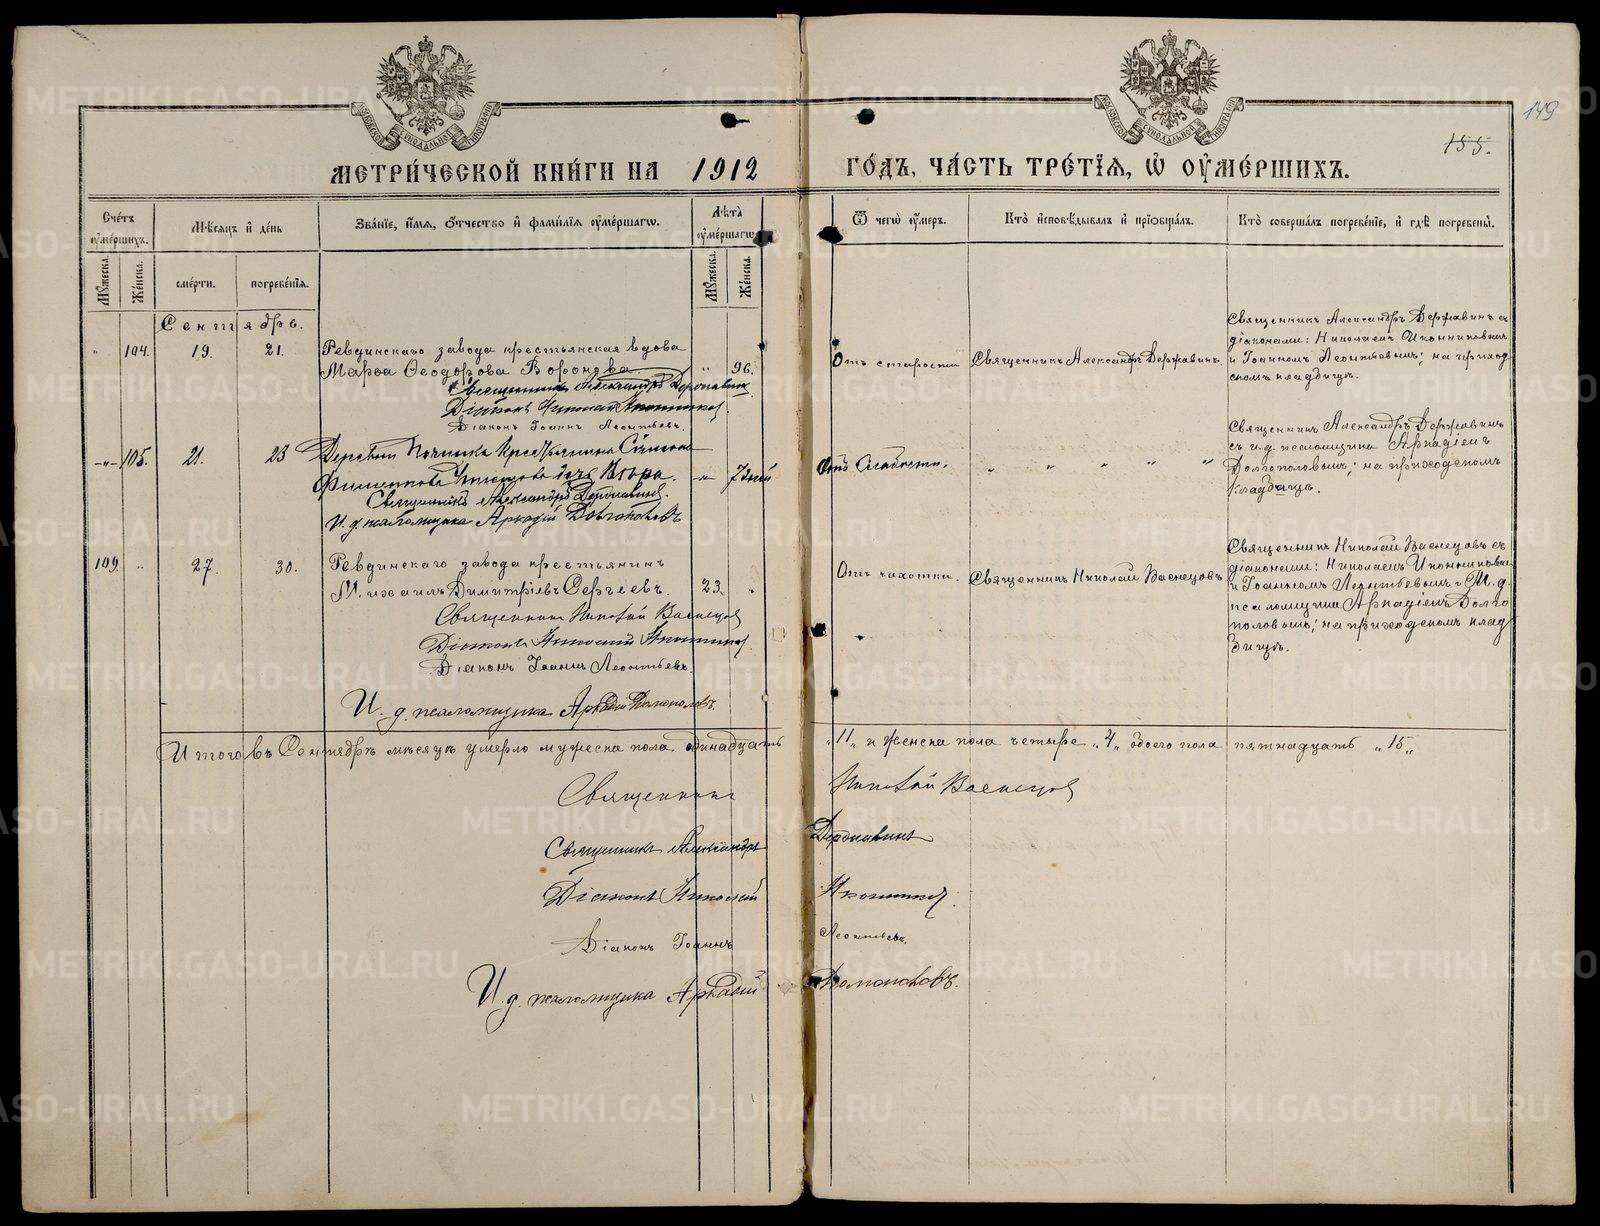 149
155.
МЕТРИ́ЧЕСКОЙ КНИ́ГИ НА 1912 ГО́ДЪ, ЧА́СТЬ ТРЕ́ТІЯ, Ѡ ОУМЕ́РШИХЪ.
Сче́тъ оуме́ршихъ.
Мѣ́сяцъ и де́нь
Зва́ніе, и́мя, ѻ́тчество и фами́лія оуме́ршагѡ.
Лѣ́та оуме́ршагѡ
Ѿ чегѡ̀ оу́меръ.
Кто̀ исповѣ́дывалъ и пріобща́лъ.
Кто̀ соверша́лъ погребе́ніе, и гдѣ̀ погребены̀.
Мꙋ́жеска.
Же́нска.
сме́рти.
погребе́нія.
Мꙋ́жеска.
Же́нска.
Сентябрь.
" 104. 19. 21. Ревдинскаго завода крестьянская вдова
Марѳа Ѳеодорова Воронова " 96.
Священникъ Александръ Державинъ
Діаконъ Николай Иконниковъ.
Діаконъ Іоаннъ Леонтьевъ.
Отъ старости
Священникъ Александръ Державинъ
Священникъ Александръ Державинъ съ
діаконами: Николаемъ Иконниковымъ
и Іоанномъ Леонтьевымъ; на приход
скомъ кладбищѣ.
-"- 105. 21. 23 Деревни Починка Крестьянина
дочь Вѣра. -"- 7 дней
Священникъ Александръ Державинъ.
И. д. псаломщика Аркадій Долгополовъ
Отъ Слабости.
" " " " "
Священникъ Александръ Державинъ
съ и.д. псаломщика Аркадіемъ
Долгополовымъ; на приходскомъ
кладбищѣ.
109. " 27. 30. Ревдинскаго завода крестьянинъ
Михаилъ Димитріевъ Сергѣевъ. 23. "
Священникъ Николай Васнецовъ
Діаконъ Николай Иконниковъ.
Діаконъ Іоаннъ Леонтьевъ.
И. д. псаломщика Аркадій Долгополовъ.
Отъ чахотки.
Священникъ Николай Васнецовъ
Священникъ Николай Васнецовъ съ
діаконами: Николаемъ Иконниковы
и Іоанномъ Леонтьевымъ и И. д.
псаломщика Аркадіемъ Долго
половымъ; на приходскомъ клад
бищѣ.
Итого въ Сентябрѣ мѣсяцѣ умерло мужеска пола одинадцать "11" и женска пола четыре "4" обоего пола пятнадцать "15"
Священникъ Николай Васнецовъ
Священникъ Александръ Державинъ
Діаконъ Николай Иконниковъ.
Діаконъ Іоаннъ Леонтьевъ.
И. д. псаломщика Аркадій Долгополовъ.
METRIKI.GASO-URAL.RU